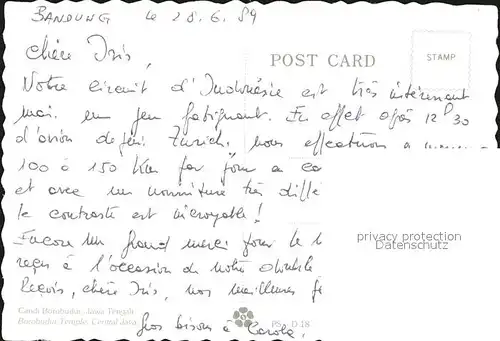 BANDUNG le 28.6.89
Chère Iris,
POST CARD
STAMP
Notre circuit d'Indonésie est très intéressant
mais un peu fatiguant. En effet après 12h30
d'avion depuis Zurich, nous effectuons
100 à 150 Km par jour
et avec une nourriture très
le contraste est incroyable!
Encore un grand merci pour
reçu à l'occasion de notre
Reçois, chère Iris, nos meilleures
privacy protection
Datenschutz
Candi Borobudur, Jawa Tengah
Borobudur Temple, Central Java
Gros bisous à Carole.
PS. D.18